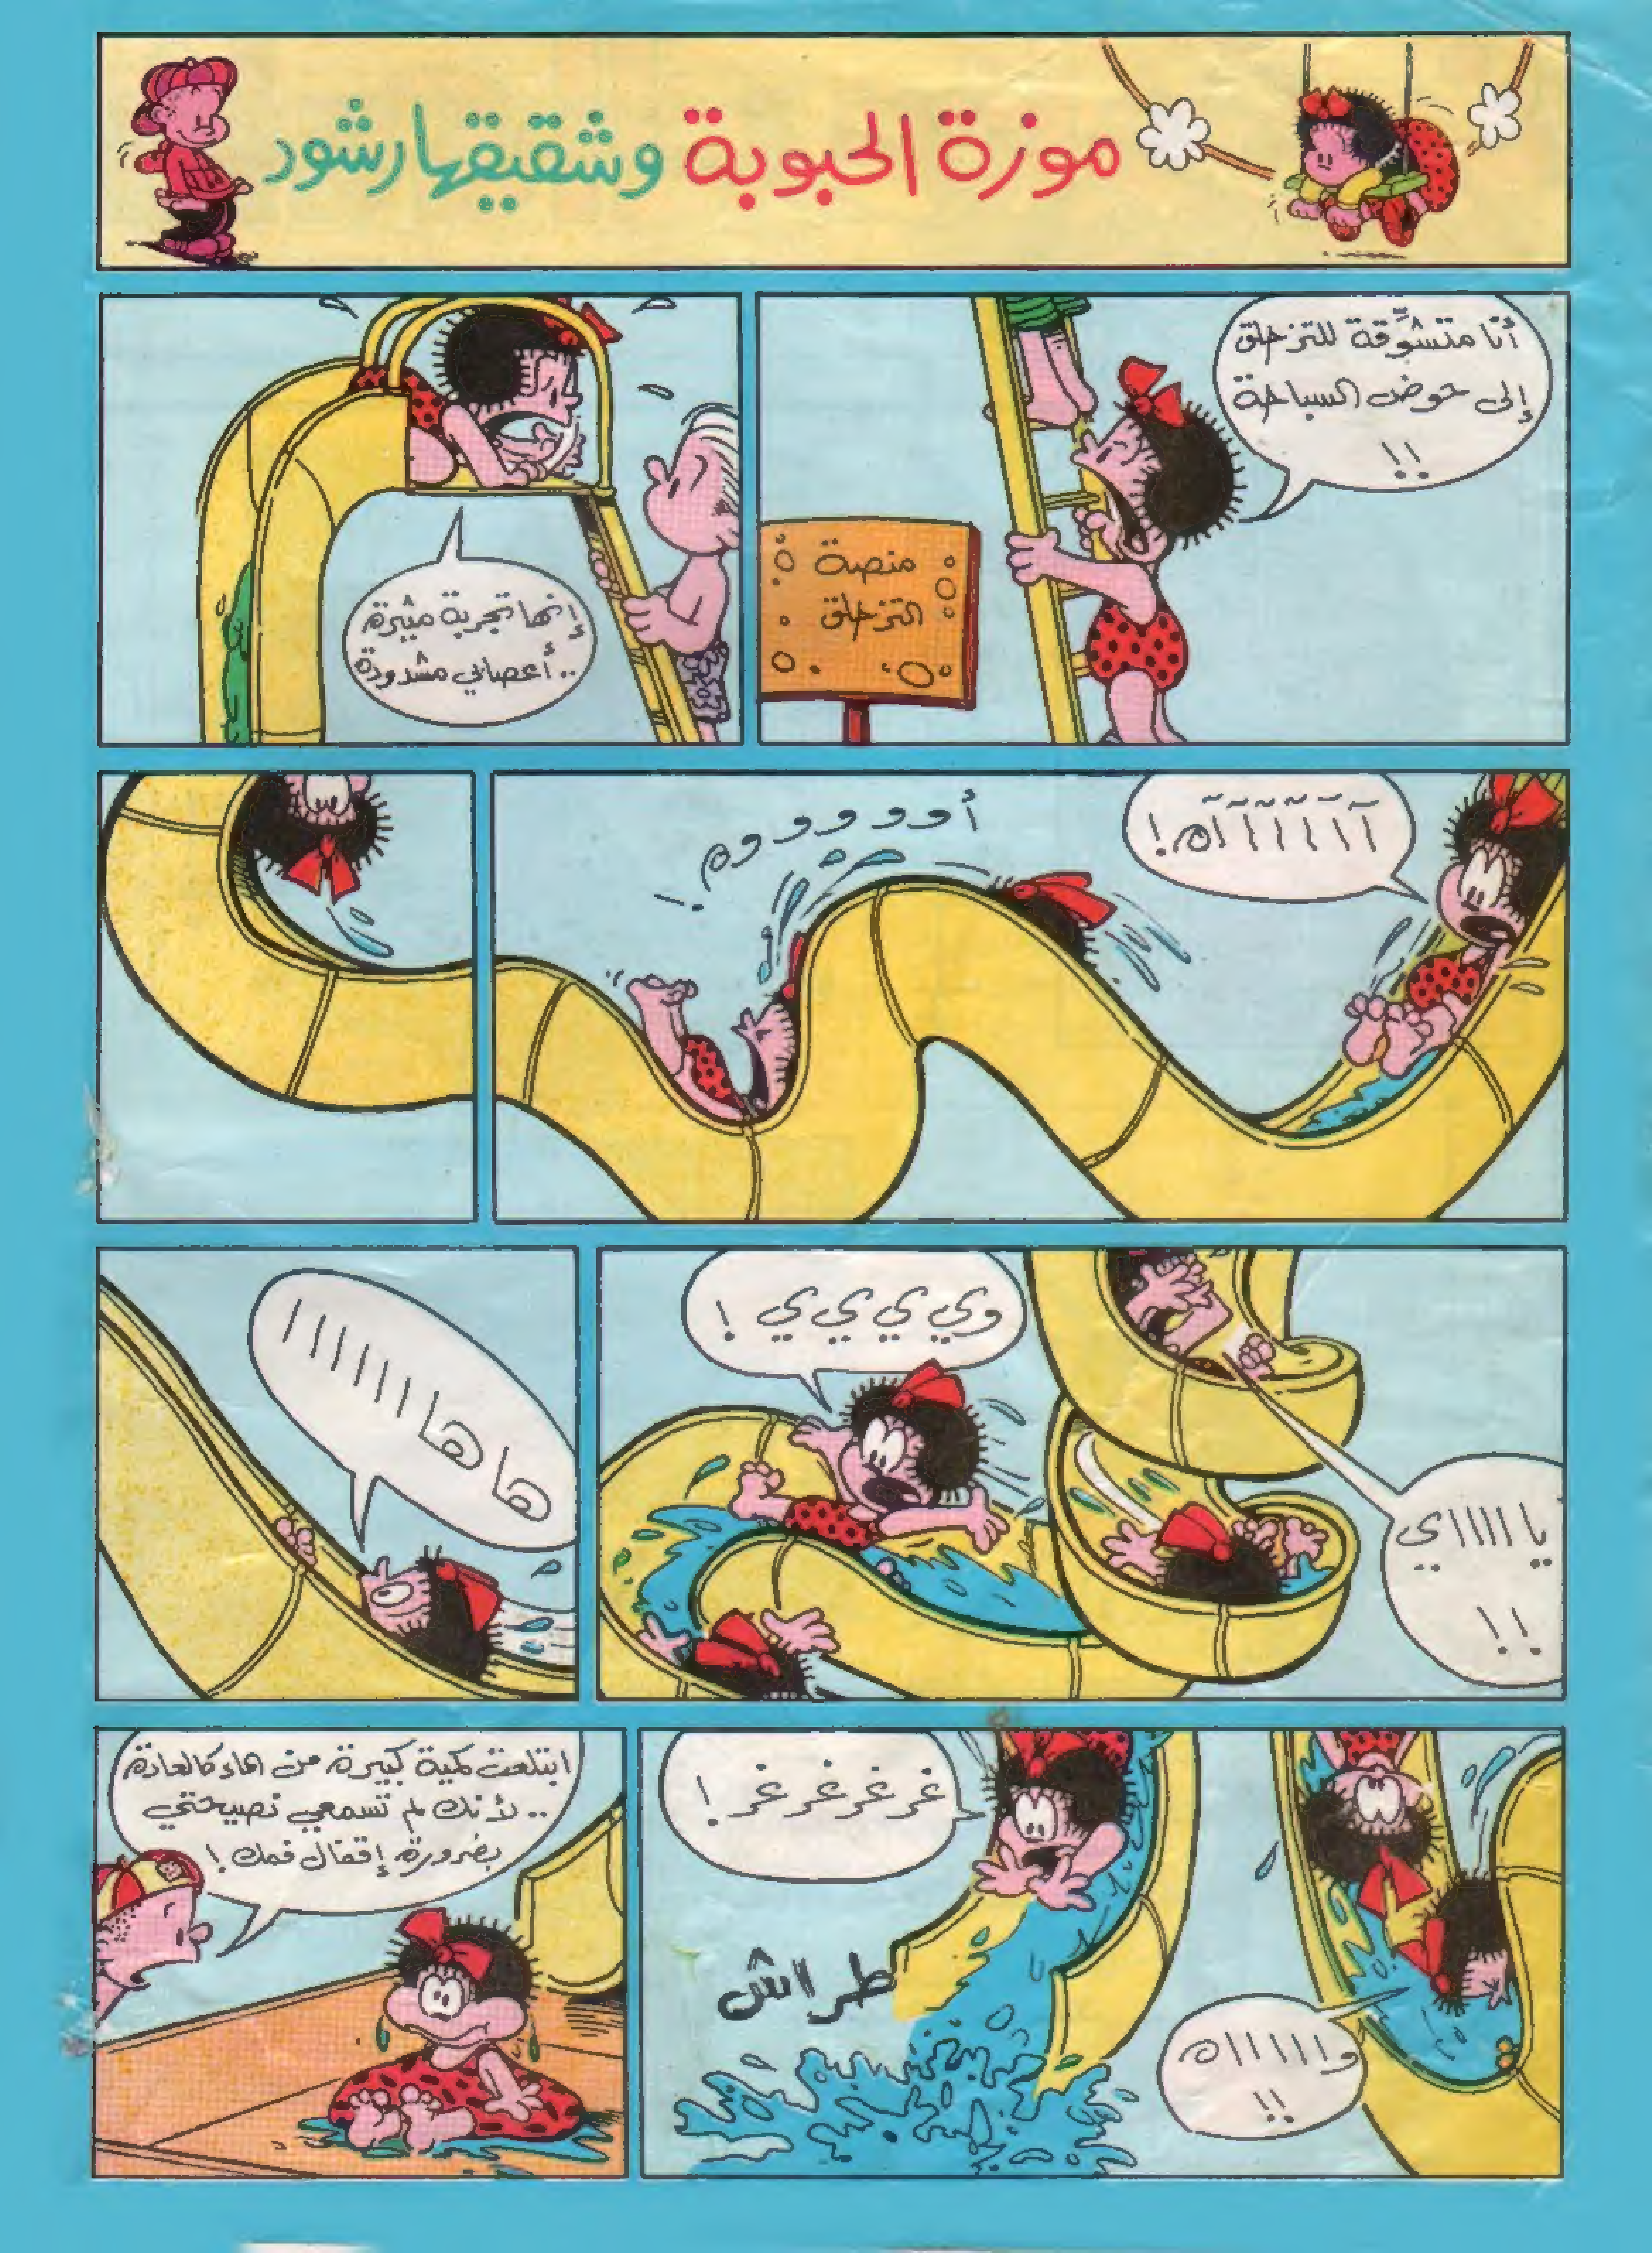 موزة الحبوبة وشقيقها رشود
أنا متشوِّقة للتزحلق
إلى حوض السباحة
!!
منصة
التزحلق
إنها تجربة مثيرة
.. أعصابي مشدودة
آآآآآآآه!
أووووووم!
يا اااااي
!!
وي ي ي ي !
ها هااااااا
وااااااه
!!
غرغرغرغر !
طراش
ابتلعت كمية كبيرة من الماء كالعادة
.. لأنك لم تسمعي نصيحتي
بضرورة إقفال فمك !